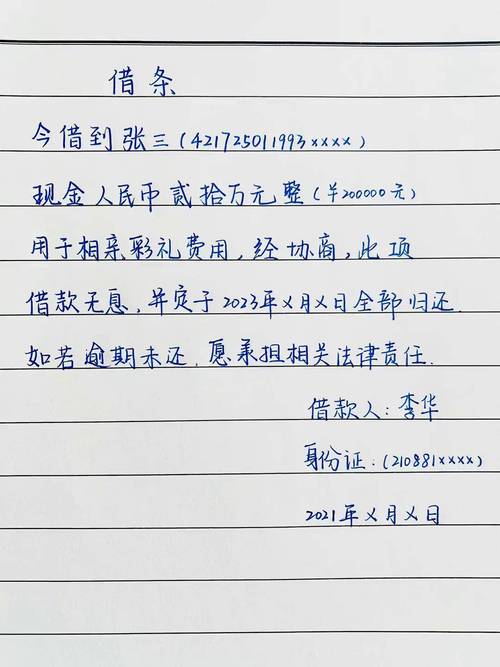 借条
今借到张三(421725011993××××)
现金人民币贰拾万元整(¥200000元)
用于相亲彩礼费用,经协商,此项
借款无息,并定于2023年×月×日全部归还.
如若逾期未还,愿承担相关法律责任.
借款人:李华
身份证:(210881××××)
2021年×月×日